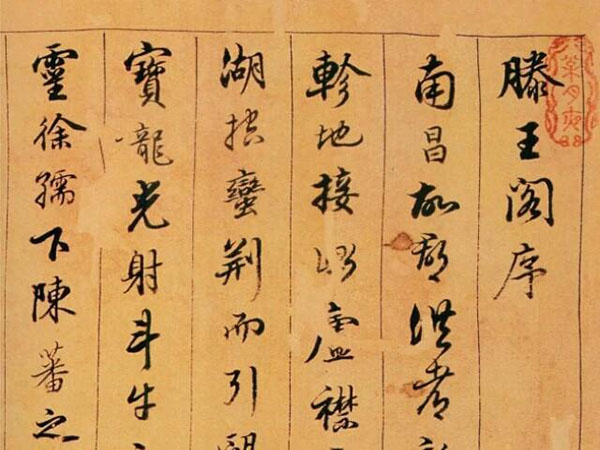 滕王閣序
南昌故郡洪都新
軫地接衡廬襟
湖控蠻荆而引甌
寶龍光射斗牛
靈徐孺下陳蕃之